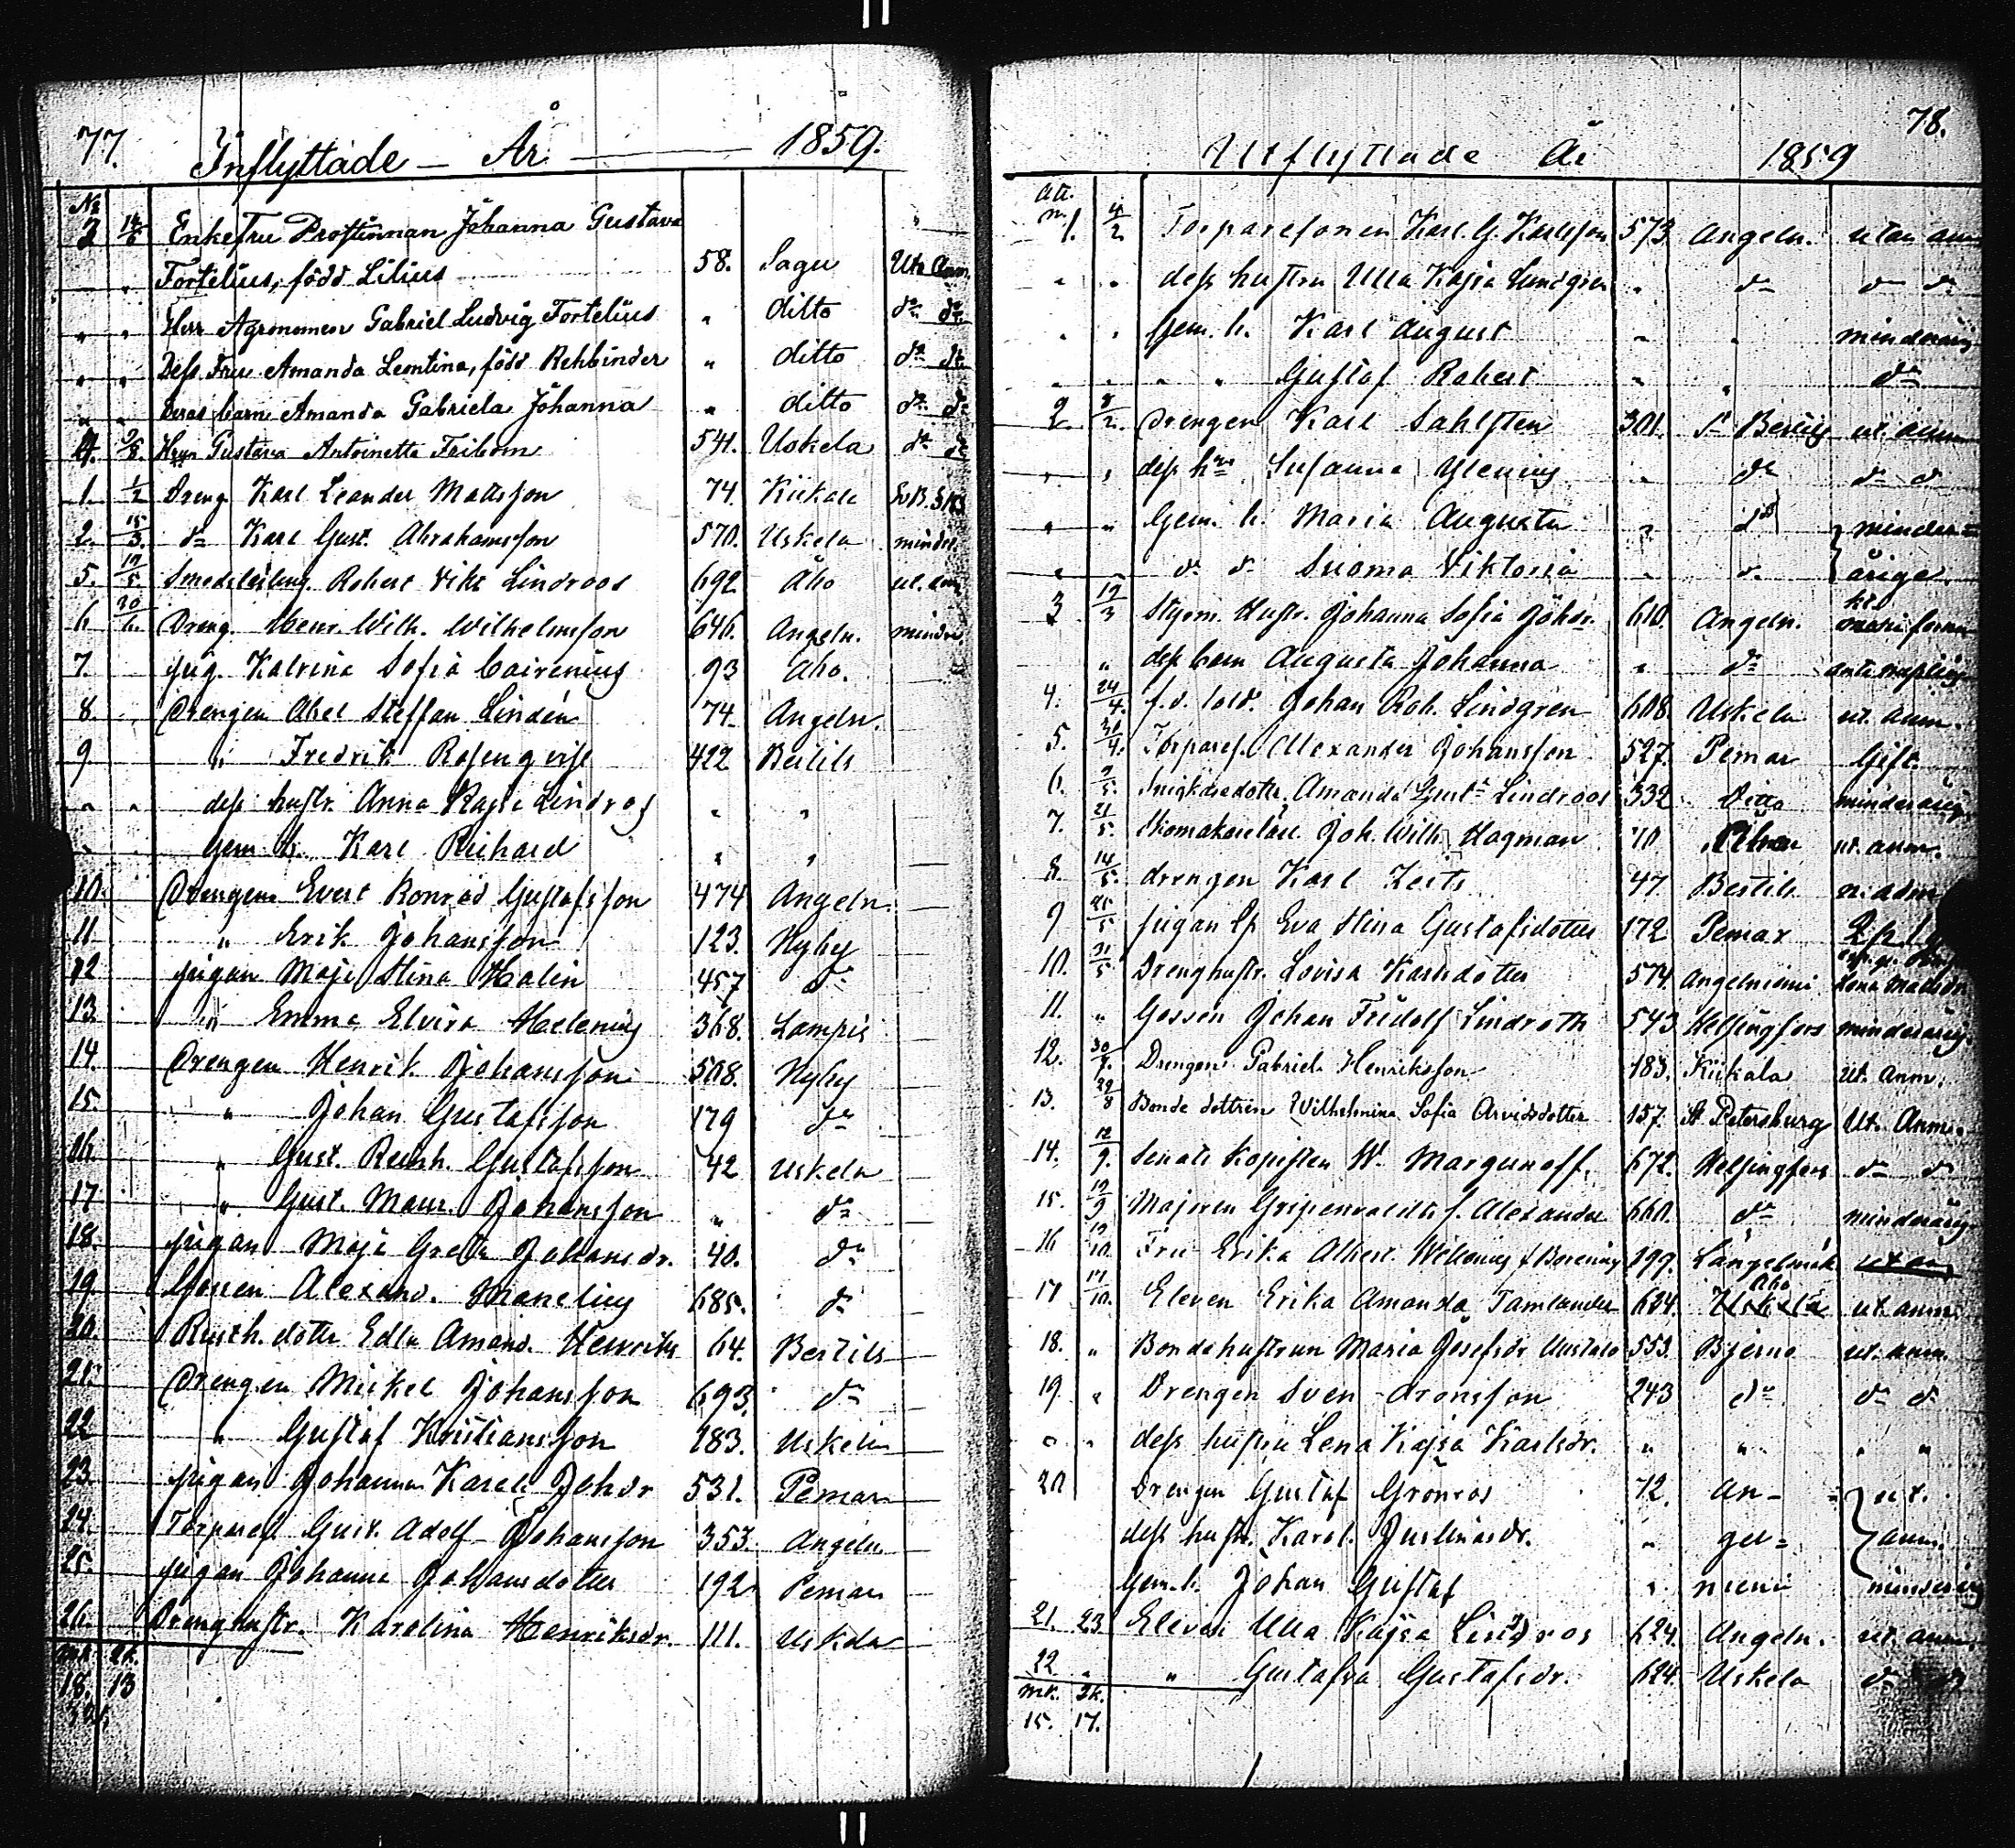 77. Inflyttade — År — 1859.
No
3 14/6 Enkefru Prostinnan Johanna Gustava
" Fortelius, född Lilius 58. Sagu Utn Anm.
" " Herr Agronomen Gabriel Ludvig Fortelius " ditto do do
" " Dess Fru Amanda Leontina, född Rehbinder " ditto do do
" " Deras barn Amanda Gabriela Johanna " ditto do do
4. 9/8. Gustava Antoinetta Feibom 541. Uskela do do
1. 1/2 Dreng Karl Leander Mattsson 74. Kiikala
2. 15/3. do Karl Gust. Abrahamsson 570. Uskela minder.
5. 19/5 Smedslärling Robert Vikt Lindroos 692 Åbo ut. anm
6. 20/6. Dreng. Henr. Wilh. Wilhelmsson 646. Angeln. mindre
7. pig. Katrina Sofia Cairenius 93 Åbo.
8. Drengen Abel Steffan Lindén 74. Angeln.
9 " Fredrik Rosenqvist 422 Bertils
" " dess hustr. Anna Kajsa Lindros " "
" gem. b. Karl Richard " "
10. Drengen Evert Konrad Gustafsson 474 Angeln.
11 " Erik Johansson 123. Nyby
12 pigan Maja Stina Malin 457 do
13. " Emma Elvira Helenius 368. Lampis
14. Drengen Henrik Johansson 508. Nyby
15. " Johan Gustafsson 179 do
16. " Gust. Reinh. Gustafsson 42 Uskela
17 " Gust. Maur. Johansson " do
18. pigan Maja Greta Johansdr. 40. do
19. Gossen Alexand. Manelius 685. do
20. Rusth. dottr Edla Amand. Henriks 64. Bertils
21. Drengen Mickel Johansson 693. do
22 " Gustaf Kristiansson 183. Uskela
23. pigan Johanna Karol. Johdr 531. Pemar
24. Torpares. Gust. Adolf Johansson 353. Angeln
25. pigan Johanna Johansdotter 192 Pemar
26. Drenghustr. Karolina Henriksdr. 111. Uskela
mk. qk.
18. 13
78.
Utflyttade År 1859
Att.
n. 1. 4/2 Torparesonen Karl G. Karlsson 573. Angeln. utan anm
" " dess hustru Ulla Kajsa Lundgren " do do do
" " Gem. b. Karl August " " minderårig
" " " " Gustaf Robert " " do
2. 8/2. Drengen Karl Sahlsten 301. ut. anm
" " dess hru Susanna Ylenius " do do do
" " Gem. b. Maria Augusta " do minder=
" " do do Suoma Viktoria " do årige.
3 19/3 Hustr. Johanna Sofia Johdr. 610. Angeln.
" dess barn Augusta Johanna " do
4. 24/4. f.d. sold. Johan Rob. Lindgren 608. Uskela ut. anm.
5. 31/4. Torpares. Alexander Johansson 527. Pemar Gift.
6. 9/5. Snickaredotter Amanda Gust. Lindroos 332 Ditto minderårig
7. 21/5. Skomakarelärl. Joh. Wilh. Hagman 70 ut. anm.
8. 14/5. drengen Karl Zeits 47 Bertils
9 25/5 pigan Eva Stina Gustafsdotter 172 Pemar
10. 31/5 Drenghustr. Lovisa Karlsdotter 574 Angelniemi
11. " Gossen Johan Fridolf Lindroth 543 Helsingfors minderårig.
12. 30/7. Drengen Gabriel Henriksson 183. Kiikala Ut. Anm.
13. 29/8 Bonde dottren Wilhelmina Sofia Arvidsdotter 157. St Petersburg Ut. Anm.
14. 12/9. Senats kopisten W. Margunoff. 672. Helsingfors do do
15. 19/9 Majoren Gripenwaldts s. Alexander 660. do minderårig
16 10/10. Fru Erika Albert. Willenius f Borenius 199. Längelmäk ut an
17 17/10. Eleven Erika Amanda Tamlander 624. Uskela Åbo ut. anm.
18. " Bondehustrun Maria Josefsdr Uustalo 553. Bjerno ut. anm.
19. " Drengen Sven Aronsson 243 do do do
" " dess hustru Lena Kajsa Karlsdr. " " " "
20 Drengen Gustaf Grönros 72. An- ut.
dess hustr. Karol. Juslinasdr. " gel= anm.
Gem. b. Johan Gustaf " niemi minderårig
21. 23 Eleven Ulla Kajsa Lindros 624. Angeln. ut. anm.
22 " " Gustafva Gustafsdr. 624. Uskela do do
mk. qk.
15. 17.